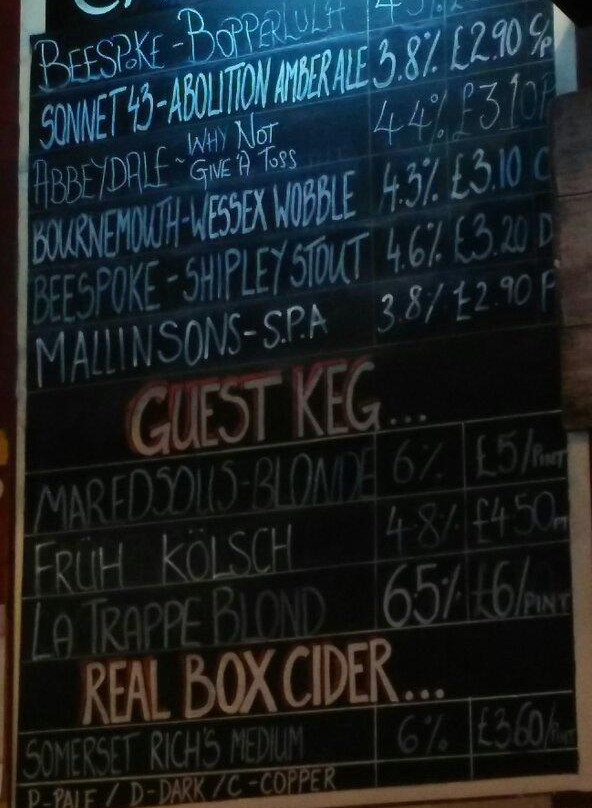 BEESPOKE - BOPPERLULA
SONNET 43 - ABOLITION AMBER ALE 3.8% £2.90 C/P
ABBEYDALE ~ WHY NOT GIVE A TOSS 4.4% £3.10 P
BOURNEMOUTH - WESSEX WOBBLE 4.3% £3.10 C
BEESPOKE - SHIPLEY STOUT 4.6% £3.20 D
MALLINSONS - S.P.A 3.8% £2.90 P
GUEST KEG...
MAREDSOUS - BLONDE 6% £5/PINT
FRÜH KÖLSCH 4.8% £4.50
LA TRAPPE BLOND 6.5% £6/PINT
REAL BOX CIDER...
SOMERSET RICH'S MEDIUM 6% £3.60/PINT
P-PALE / D-DARK / C-COPPER